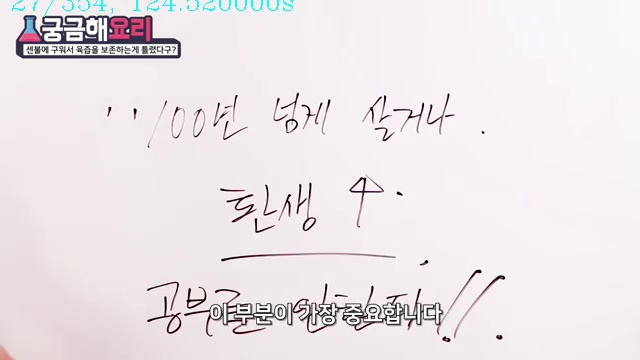 27/354, 124.520000s
궁금해요리
센불에 구워서 육즙을 보존하는게 틀렸다구?
''100년 넘게 살거나.
환생 ↑.
공부를
이 부분이 가장 중요합니다